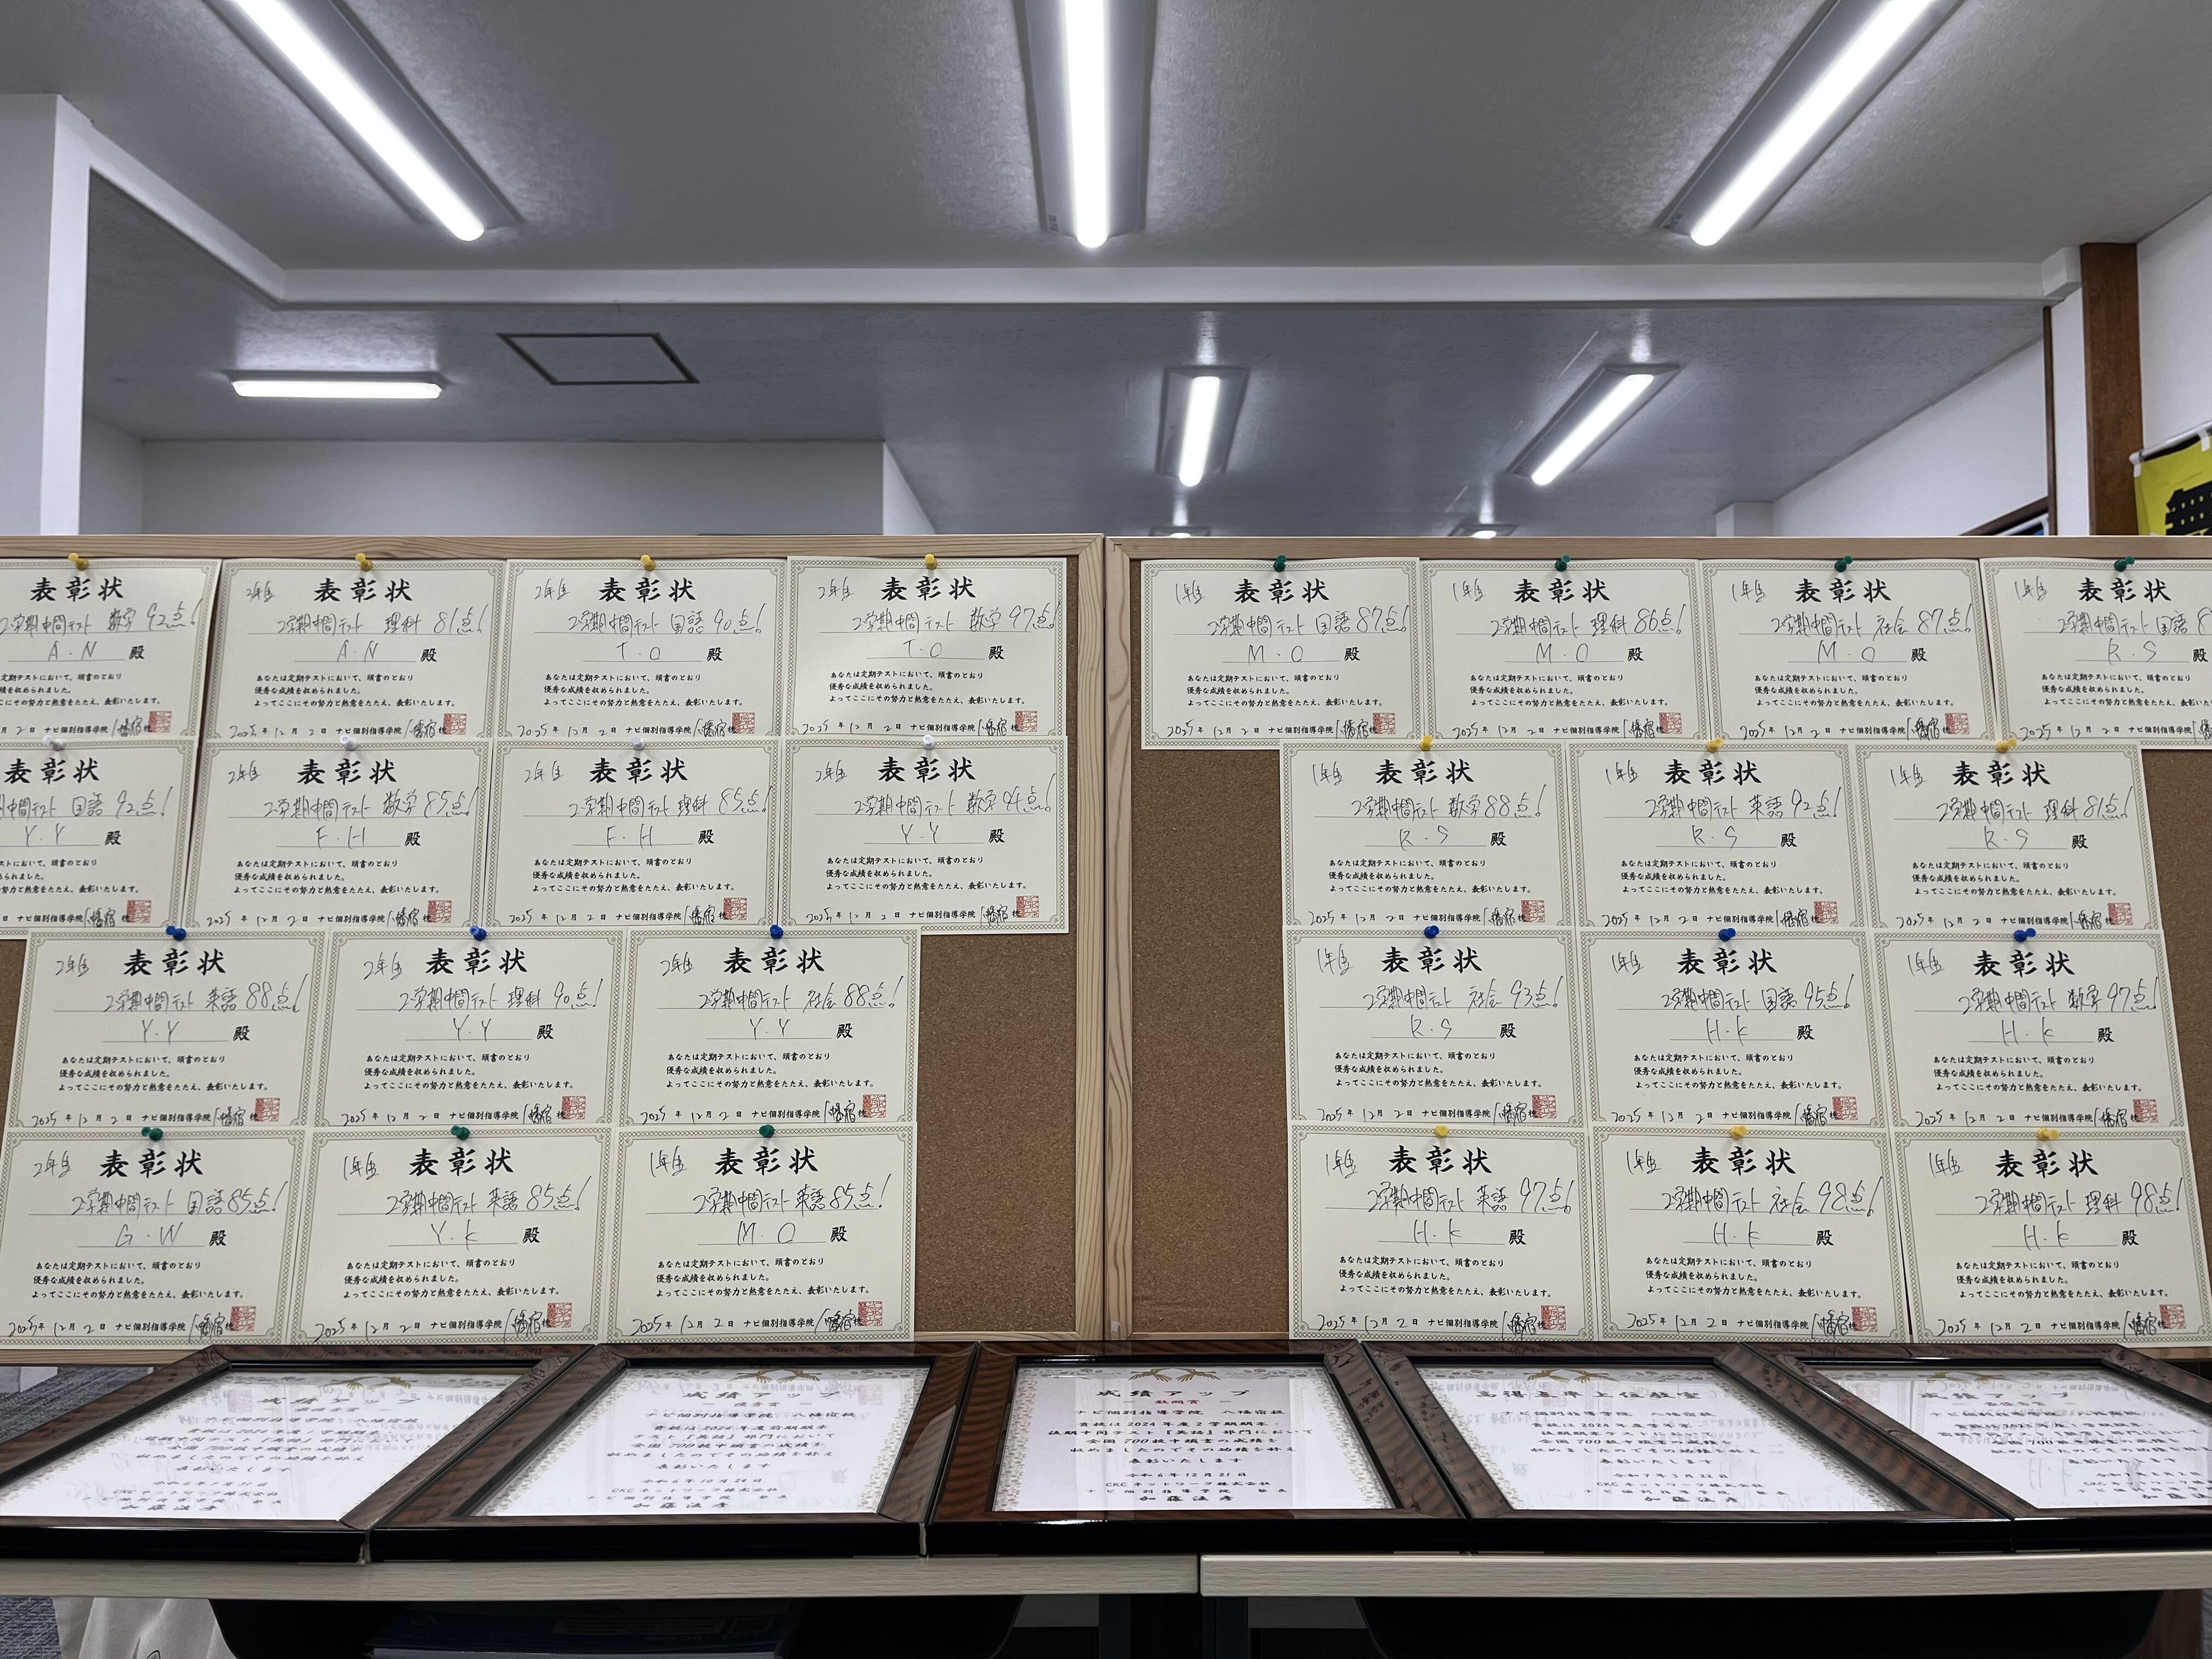 表彰状
2学期中間テスト 数学 92点!
A・N 殿
定期テストにおいて、頭書のとおり
績を収められました。
ここにその努力と熱意をたたえ、表彰いたします。
月 2 日 ナビ個別指導学院 八幡宿校
2年生 表彰状
2学期中間テスト 理科 81点!
A・N 殿
あなたは定期テストにおいて、頭書のとおり
優秀な成績を収められました。
よってここにその努力と熱意をたたえ、表彰いたします。
2025 年 12 月 2 日 ナビ個別指導学院 八幡宿校
2年生 表彰状
2学期中間テスト 国語 90点!
T・O 殿
あなたは定期テストにおいて、頭書のとおり
優秀な成績を収められました。
よってここにその努力と熱意をたたえ、表彰いたします。
2025 年 12 月 2 日 ナビ個別指導学院 八幡宿校
2年生 表彰状
2学期中間テスト 数学 97点!
T・O 殿
あなたは定期テストにおいて、頭書のとおり
優秀な成績を収められました。
よってここにその努力と熱意をたたえ、表彰いたします。
2025 年 12 月 2 日 ナビ個別指導学院 八幡宿校
表彰状
中間テスト 国語 92点!
Y・Y 殿
定期テストにおいて、頭書のとおり
を収められました。
にその努力と熱意をたたえ、表彰いたします。
日 ナビ個別指導学院 八幡宿校
2年生 表彰状
2学期中間テスト 数学 85点!
F・H 殿
あなたは定期テストにおいて、頭書のとおり
優秀な成績を収められました。
よってここにその努力と熱意をたたえ、表彰いたします。
2025 年 12 月 2 日 ナビ個別指導学院 八幡宿校
2年生 表彰状
2学期中間テスト 理科 85点!
F・H 殿
あなたは定期テストにおいて、頭書のとおり
優秀な成績を収められました。
よってここにその努力と熱意をたたえ、表彰いたします。
2025 年 12 月 2 日 ナビ個別指導学院 八幡宿校
2年生 表彰状
2学期中間テスト 数学 94点!
Y・Y 殿
あなたは定期テストにおいて、頭書のとおり
優秀な成績を収められました。
よってここにその努力と熱意をたたえ、表彰いたします。
2025 年 12 月 2 日 ナビ個別指導学院 八幡宿校
2年生 表彰状
2学期中間テスト 英語 88点!
Y・Y 殿
あなたは定期テストにおいて、頭書のとおり
優秀な成績を収められました。
よってここにその努力と熱意をたたえ、表彰いたします。
2025 年 12 月 2 日 ナビ個別指導学院 八幡宿校
2年生 表彰状
2学期中間テスト 理科 90点!
Y・Y 殿
あなたは定期テストにおいて、頭書のとおり
優秀な成績を収められました。
よってここにその努力と熱意をたたえ、表彰いたします。
2025 年 12 月 2 日 ナビ個別指導学院 八幡宿校
2年生 表彰状
2学期中間テスト 社会 88点!
Y・Y 殿
あなたは定期テストにおいて、頭書のとおり
優秀な成績を収められました。
よってここにその努力と熱意をたたえ、表彰いたします。
2025 年 12 月 2 日 ナビ個別指導学院 八幡宿校
2年生 表彰状
2学期中間テスト 国語 85点!
G・W 殿
あなたは定期テストにおいて、頭書のとおり
優秀な成績を収められました。
よってここにその努力と熱意をたたえ、表彰いたします。
2025 年 12 月 2 日 ナビ個別指導学院 八幡宿校
1年生 表彰状
2学期中間テスト 英語 85点!
Y・K 殿
あなたは定期テストにおいて、頭書のとおり
優秀な成績を収められました。
よってここにその努力と熱意をたたえ、表彰いたします。
2025 年 12 月 2 日 ナビ個別指導学院 八幡宿校
1年生 表彰状
2学期中間テスト 英語 85点!
M・O 殿
あなたは定期テストにおいて、頭書のとおり
優秀な成績を収められました。
よってここにその努力と熱意をたたえ、表彰いたします。
2025 年 12 月 2 日 ナビ個別指導学院 八幡宿校
1年生 表彰状
2学期中間テスト 国語 87点!
M・O 殿
あなたは定期テストにおいて、頭書のとおり
優秀な成績を収められました。
よってここにその努力と熱意をたたえ、表彰いたします。
2025 年 12 月 2 日 ナビ個別指導学院 八幡宿校
1年生 表彰状
2学期中間テスト 理科 86点!
M・O 殿
あなたは定期テストにおいて、頭書のとおり
優秀な成績を収められました。
よってここにその努力と熱意をたたえ、表彰いたします。
2025 年 12 月 2 日 ナビ個別指導学院 八幡宿校
1年生 表彰状
2学期中間テスト 社会 87点!
M・O 殿
あなたは定期テストにおいて、頭書のとおり
優秀な成績を収められました。
よってここにその努力と熱意をたたえ、表彰いたします。
2025 年 12 月 2 日 ナビ個別指導学院 八幡宿校
1年生 表彰状
2学期中間テスト 国語
R・S 殿
あなたは定期テストにおいて、頭書のとおり
優秀な成績を収められました。
よってここにその努力と熱意をたたえ、表彰いたし
2025 年 12 月 2 日 ナビ個別指導学院
1年生 表彰状
2学期中間テスト 数学 88点!
R・S 殿
あなたは定期テストにおいて、頭書のとおり
優秀な成績を収められました。
よってここにその努力と熱意をたたえ、表彰いたします。
2025 年 12 月 2 日 ナビ個別指導学院 八幡宿校
1年生 表彰状
2学期中間テスト 英語 92点!
R・S 殿
あなたは定期テストにおいて、頭書のとおり
優秀な成績を収められました。
よってここにその努力と熱意をたたえ、表彰いたします。
2025 年 12 月 2 日 ナビ個別指導学院 八幡宿校
1年生 表彰状
2学期中間テスト 理科 81点!
R・S 殿
あなたは定期テストにおいて、頭書のとおり
優秀な成績を収められました。
よってここにその努力と熱意をたたえ、表彰いたします。
2025 年 12 月 2 日 ナビ個別指導学院 八幡宿校
1年生 表彰状
2学期中間テスト 社会 93点!
R・S 殿
あなたは定期テストにおいて、頭書のとおり
優秀な成績を収められました。
よってここにその努力と熱意をたたえ、表彰いたします。
2025 年 12 月 2 日 ナビ個別指導学院 八幡宿校
1年生 表彰状
2学期中間テスト 国語 95点!
H・K 殿
あなたは定期テストにおいて、頭書のとおり
優秀な成績を収められました。
よってここにその努力と熱意をたたえ、表彰いたします。
2025 年 12 月 2 日 ナビ個別指導学院 八幡宿校
1年生 表彰状
2学期中間テスト 数学 97点!
H・K 殿
あなたは定期テストにおいて、頭書のとおり
優秀な成績を収められました。
よってここにその努力と熱意をたたえ、表彰いたします。
2025 年 12 月 2 日 ナビ個別指導学院 八幡宿校
1年生 表彰状
2学期中間テスト 英語 97点!
H・K 殿
あなたは定期テストにおいて、頭書のとおり
優秀な成績を収められました。
よってここにその努力と熱意をたたえ、表彰いたします。
2025 年 12 月 2 日 ナビ個別指導学院 八幡宿校
1年生 表彰状
2学期中間テスト 社会 98点!
H・K 殿
あなたは定期テストにおいて、頭書のとおり
優秀な成績を収められました。
よってここにその努力と熱意をたたえ、表彰いたします。
2025 年 12 月 2 日 ナビ個別指導学院 八幡宿校
1年生 表彰状
2学期中間テスト 理科 98点!
H・K 殿
あなたは定期テストにおいて、頭書のとおり
優秀な成績を収められました。
よってここにその努力と熱意をたたえ、表彰いたします。
2025 年 12 月 2 日 ナビ個別指導学院 八幡宿校
成績アップ
ナビ個別指導学院 八幡宿校
表彰いたします
成績アップ
ナビ個別指導学院 八幡宿校
貴校は2024年度前期期末
全国700校中頭書の成績を
収めましたのでその功績を称え
表彰いたします
令和6年10月24日
CKCネットワーク株式会社
ナビ個別指導学院
成績アップ
敢闘賞
ナビ個別指導学院 八幡宿校
貴校は2024年度2学期期末
後期中間テスト『英語』部門において
全国700校中頭書の成績を
収めましたのでその功績を称え
表彰いたします
令和6年12月21日
CKCネットワーク株式会社
ナビ個別指導学院
ナビ個別指導学院 八幡宿校
貴校は2024年度学年末
全国700校中頭書の成績を
収めましたのでその功績を称え
表彰いたします
令和7年3月22日
CKCネットワーク株式会社
ナビ個別指導学院
成績アップ
表彰いたします